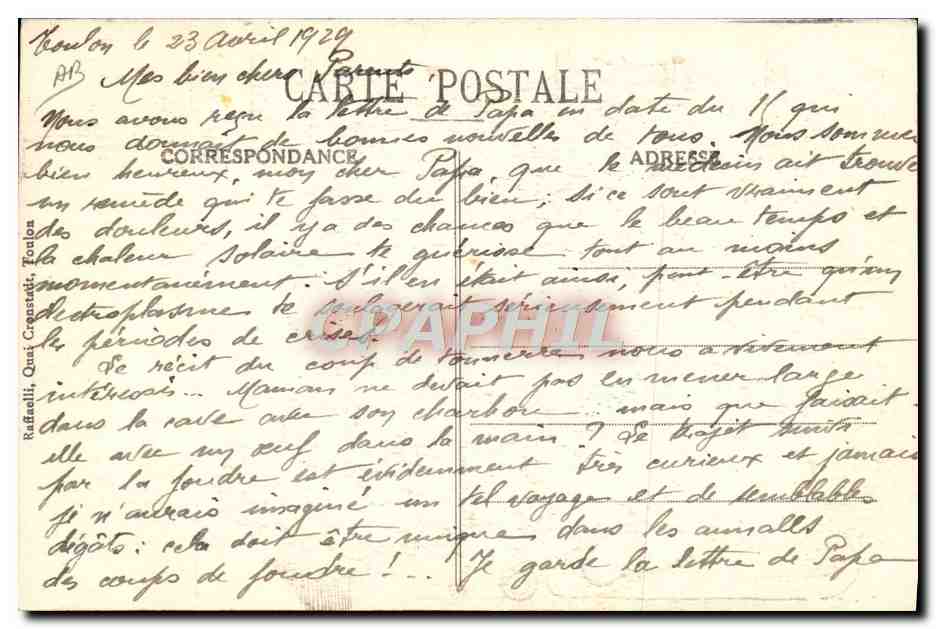 Toulon le 23 Avril 1929
AB
Mes bien chers Parents
CARTE POSTALE
Nous avons reçu la lettre de Papa en date du 15 qui
nous donnait de bonnes nouvelles de tous. Nous sommes
CORRESPONDANCE
ADRESSE
bien heureux, mon cher Papa, que le médecin ait trouvé
un remède qui te fasse du bien ; si ce sont vraiment
des douleurs, il y a des chances que le beau temps et
la chaleur solaire te guérisse tout au moins
momentanément. S'il en était ainsi, peut-être qu'un
électroplasme te soulagerait sérieusement pendant
les périodes de crises.
CPAPHIL
Le récit du coup de tonnerre nous a vivement
intéressés... Maman ne devait pas en mener large
dans la cave avec son charbon mais que faisait-
elle avec un œuf dans la main ? Le trajet suivi
par la foudre est évidemment très curieux et jamais
je n'aurais imaginé un tel voyage et de semblables
dégâts : cela doit être unique dans les annales
des coups de foudre !... Je garde la lettre de Papa
Raffaelli, Quai Cronstadt, Toulon